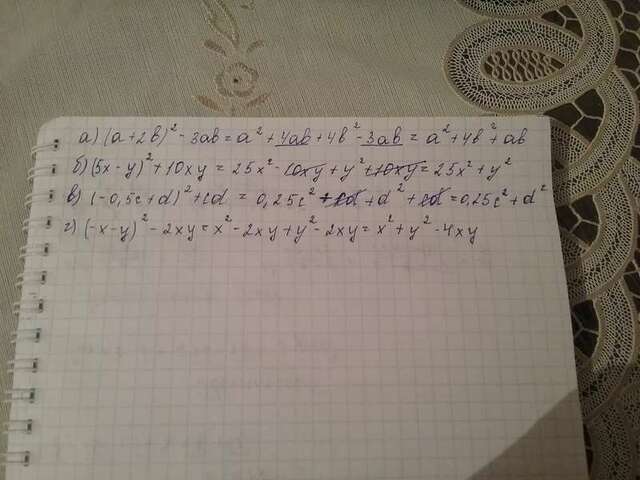 а) (a+2b)² - 3ab = a² + 4ab + 4b² - 3ab = a² + 4b² + ab
б) (5x-y)² + 10xy = 25x² - 10xy + y² + 10xy = 25x² + y²
в) (-0,5c+d)² + cd = 0,25c² - cd + d² + cd = 0,25c² + d²
г) (-x-y)² - 2xy = x² - 2xy + y² - 2xy = x² + y² - 4xy